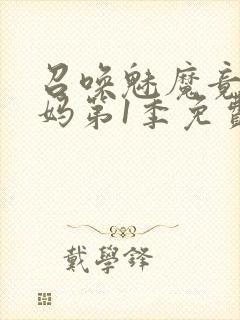 召唤魅魔竟
妈第1季免費
戴學鋒